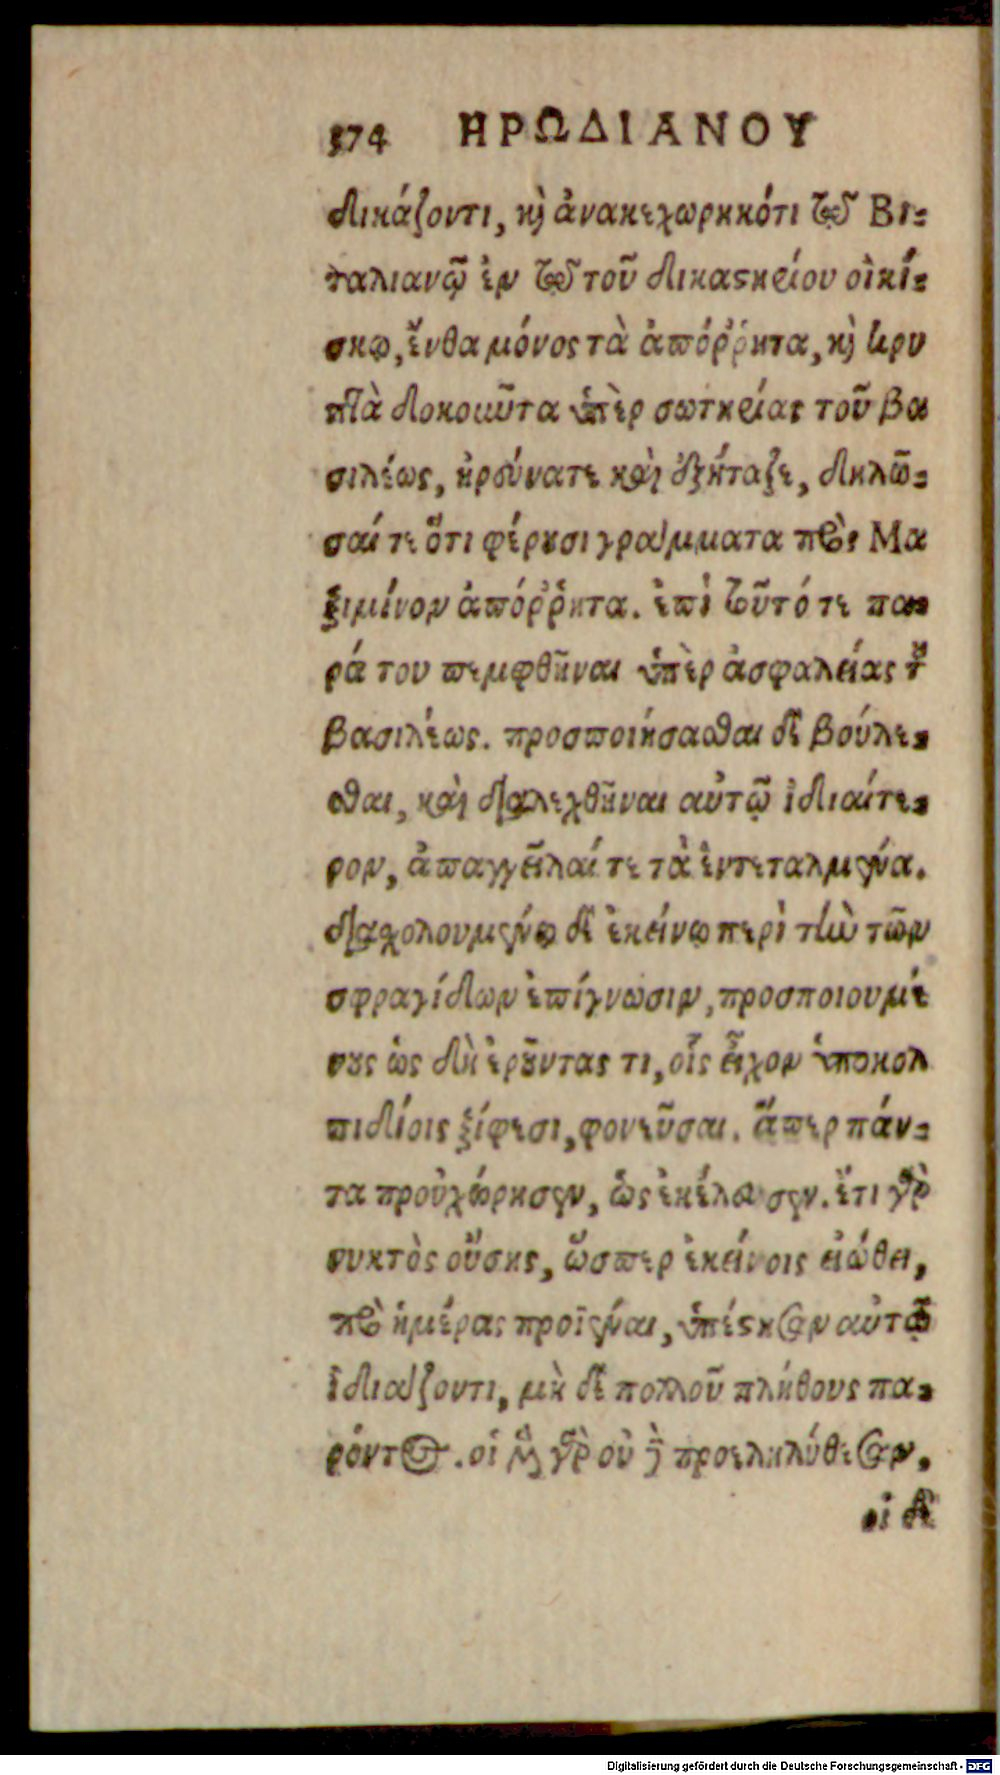 374 ΗΡΩΔΙΑΝΟΥ
δικάζοντι, καὶ ἀνακεχωρηκότι τῷ Βι-
ταλιανῷ ἐν τῷ τοῦ δικαστηρίου οἰκί-
σκῳ, ἔνθα μόνος τὰ ἀπόῤῥητα, καὶ κρυ
πτὰ δοκοῦντα ὑπὲρ σωτηρίας τοῦ βα
σιλέως, ἠρεύνατε καὶ ἐξήταζε, δηλῶ-
σαί τε ὅτι φέρουσι γράμματα πρὸς Μα
ξιμίνον ἀπόῤῥητα. ἐπὶ τοῦτό τε πα-
ρά του πεμφθῆναι ὑπὲρ ἀσφαλείας τοῦ
βασιλέως. προσποιήσασθαι δὲ βούλε-
σθαι, καὶ διαλεχθῆναι αὐτῷ ἰδιαίτε-
ρον, ἀπαγγεῖλαί τε τὰ ἐντεταλμένα.
διαχολουμένῳ δὲ ἐκείνῳ περὶ τὴν τῶν
σφραγίδων ἐπίγνωσιν, προσποιουμέ
νους ὡς δὴ ἐροῦντας τι, οἷς εἶχον ὑποκολ
πιδίοις ξίφεσι, φονεῦσαι. ἅπερ πάν-
τα προὐχώρησεν, ὡς ἐκέλευσεν. ἔτι γὰρ
νυκτὸς οὔσης, ὥσπερ ἐκείνοις εἰώθει,
πρὸ ἡμέρας προϊέναι, ὑπέστησαν αὐτῷ
ἰδιάζοντι, μὴ δὲ πολλοῦ πλήθους πα-
ρόντος. οἱ μὲν γὰρ οὐ προεληλύθεσαν,
οἱ δὲ
Digitalisierung gefördert durch die Deutsche Forschungsgemeinschaft - DFG